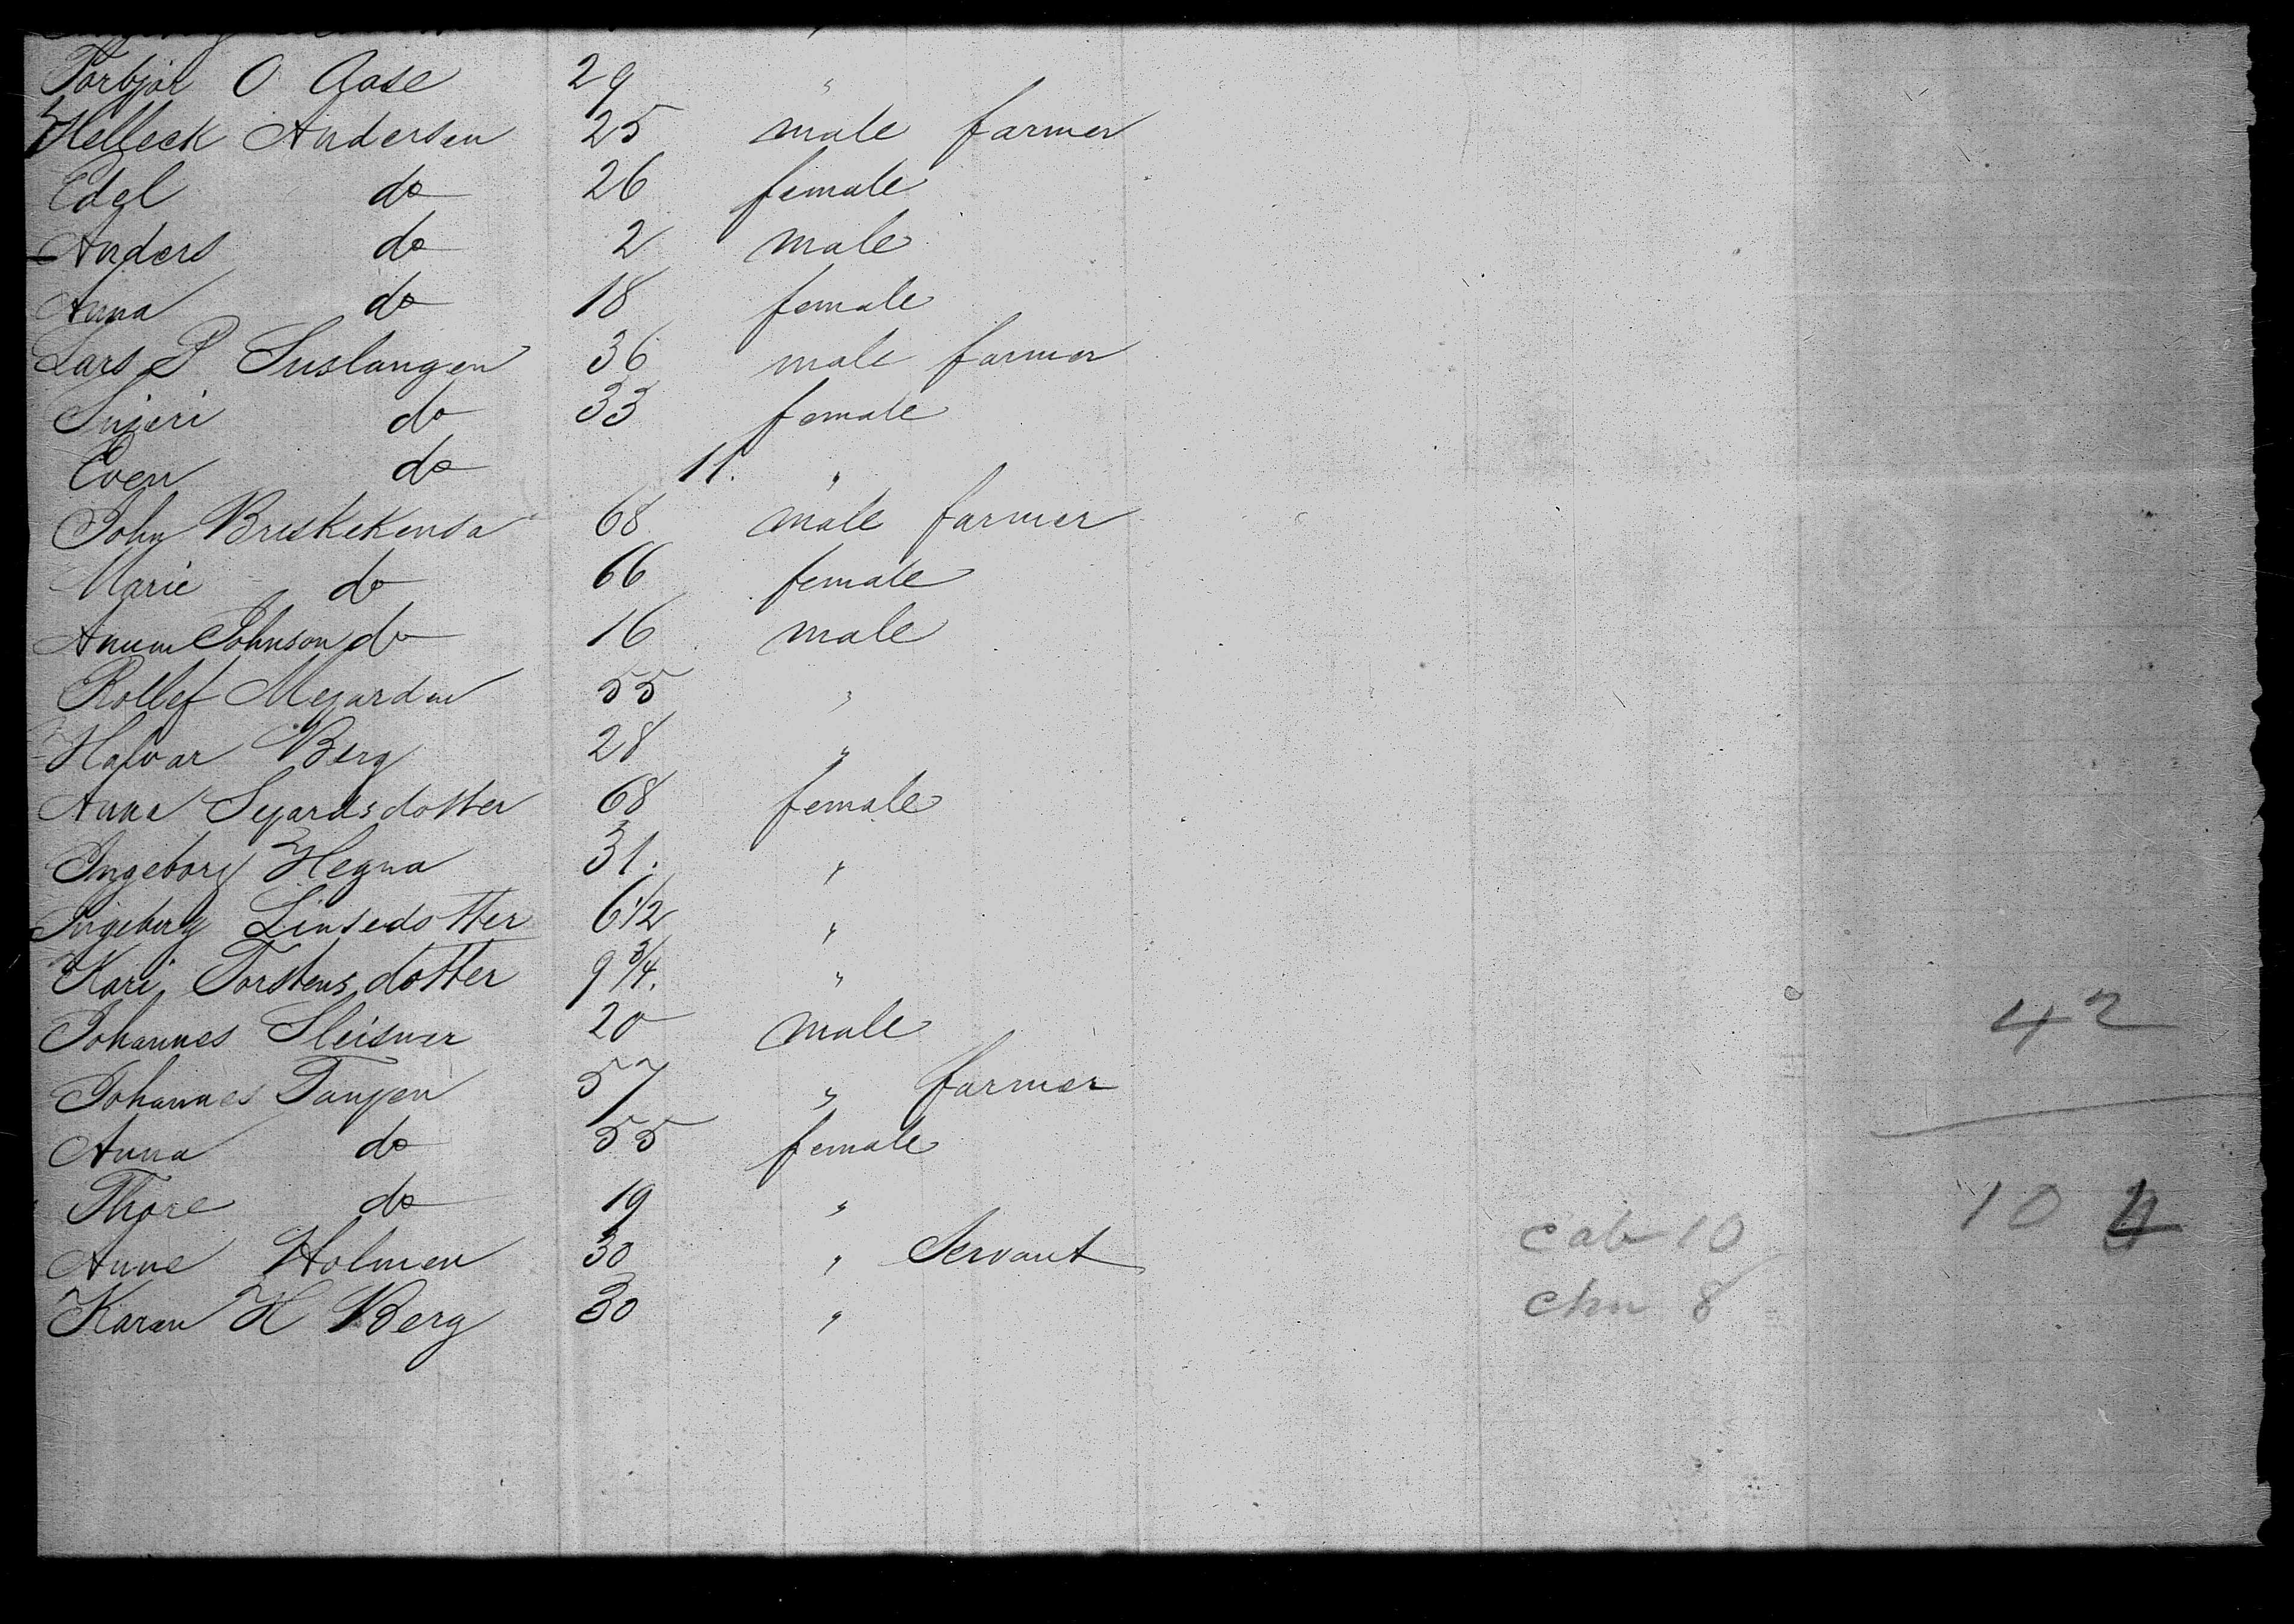 Torbjor O Aase 29 "
Helleck Andersen 25 male farmer
Edel do 26 female
Anders do 2 male
Anna do 18 female
Lars P Suslangen 36 male farmer
Sujeri do 33 female
Even do 11. "
John Briskekenda 68 male farmer
Marie do 66 female
Anum Johnson do 16 male
Rollef Megarden 55 "
Halvar Berg 28 "
Anna Sejards dotter 68 female
Ingeborg Hegna 31. "
Ingeberg Linsedotter 6 1/2 "
Kari Torstens dotter 9 3/4. "
Johannes Sleisner 20 male
42
Johannes Tangen 57 " farmer
Anna do 55 female
Thore do 19 "
10 4
cab 10
Anne Holmen 30 " Servant
chn 8
Karen H Berg 30 "